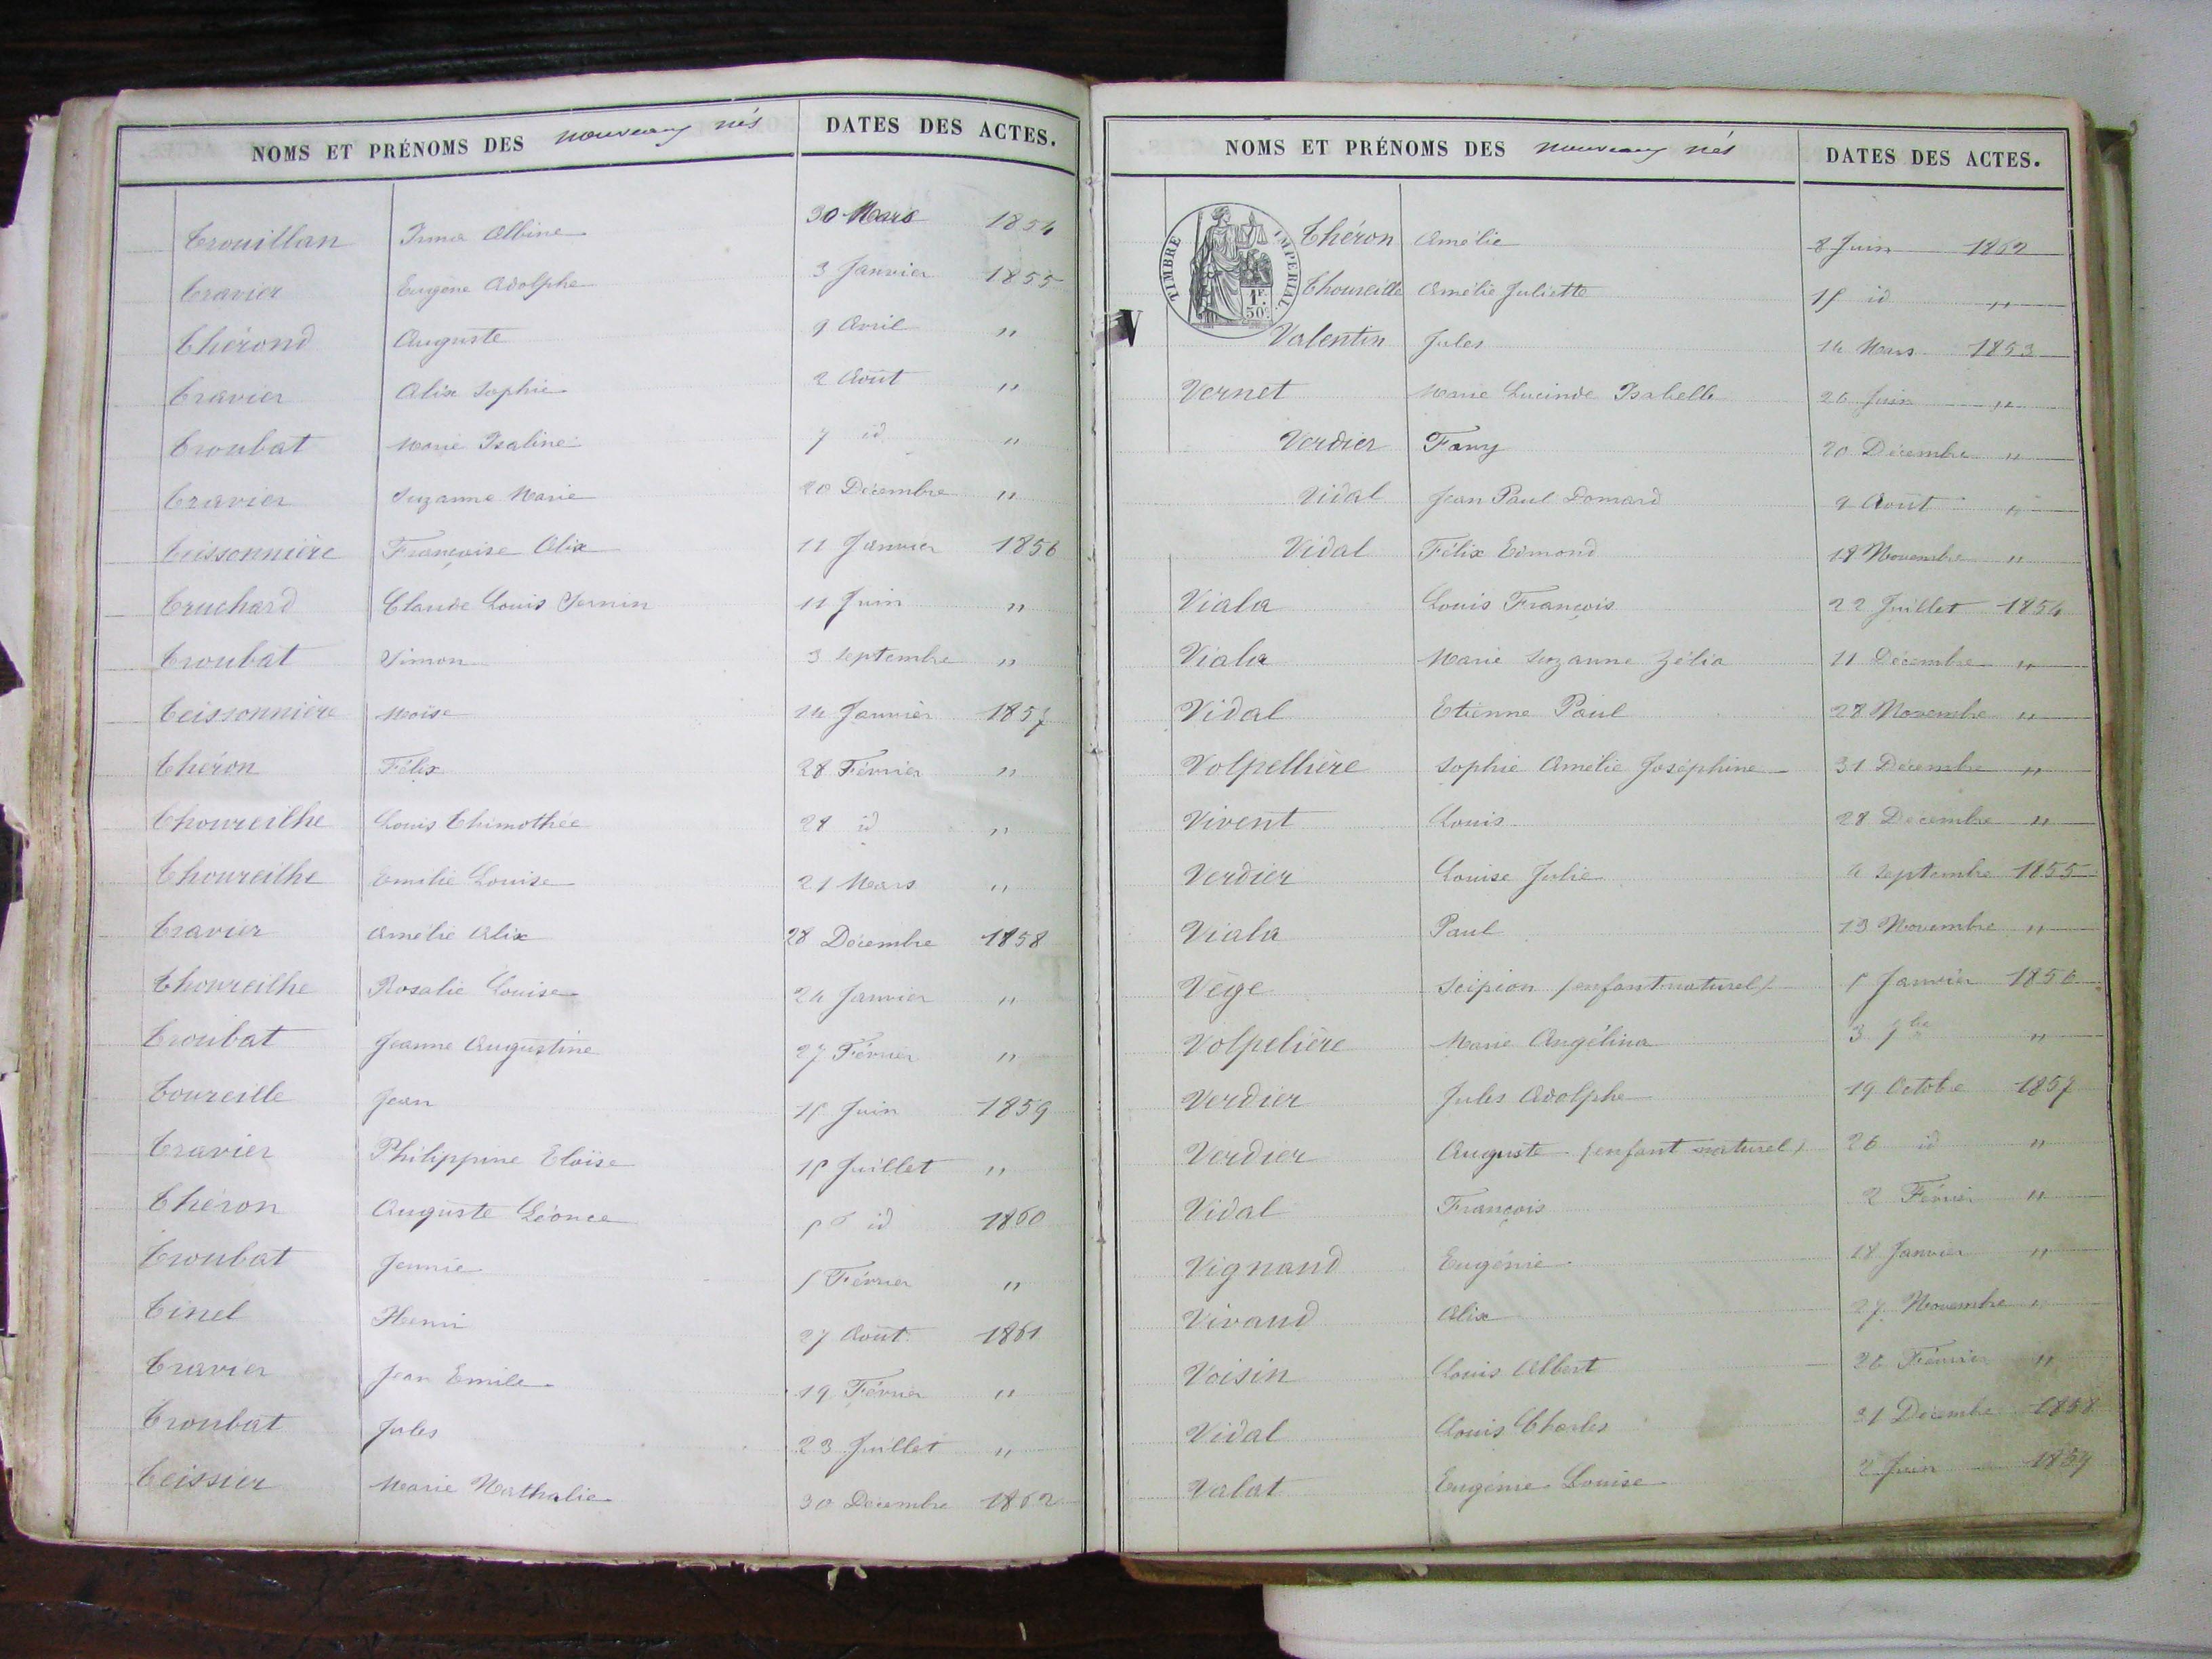 NOMS ET PRÉNOMS DES nouveaux nés DATES DES ACTES.
Trouillan Irma Albine 30 Mars 1854
Travier Eugène Adolphe 3 Janvier 1855
Thérond Auguste 9 Avril "
Travier Alix Sophie 2 Août "
Troubat Marie Isaline 7 id "
Travier Suzanne Marie 20 Décembre "
Teissonnière Françoise Alix 11 Janvier 1856
Truchard Claude Louis 11 Juin "
Troubat Simon 3 Septembre "
Teissonnière Moïse 14 Janvier 1857
Théron Félix 28 Février "
Thoureilhe Louis Thimothée 28 id "
Thoureilhe Emilie Louise 21 Mars "
Travier Amélie Alix 28 Décembre 1858
Thoureilhe Rosalie Louise 24 Janvier "
Troubat Jeanne Augustine 27 Février "
Toureille Jean Juin 1859
Travier Philippine Eloïse Juillet "
Théron Auguste Léonce id 1860
Troubat Jennie Février "
Tinel Henri 27 Août 1861
Travier Jean Emile 19 Février "
Troubat Jules 23 Juillet "
Teissier Marie Nathalie 30 Décembre 1862
NOMS ET PRÉNOMS DES nouveaux nés DATES DES ACTES.
TIMBRE IMPERIAL
1F. 50c.
Théron Amélie 8 Juin 1862
Thoureille Amélie Juliette id "
V
Valentin Jules 14 Mars 1853
Vernet Marie Lucinde Isabelle 26 Juin "
Verdier Fany 20 Décembre "
Vidal Jean Paul Août "
Vidal Félix Edmond 18 Novembre "
Viala Louis François 22 Juillet 1854
Viala Marie Suzanne Zélia 11 Décembre "
Vidal Etienne Paul 28 Novembre "
Volpellière Sophie Amélie Joséphine 31 Décembre "
Vivent Louis 28 Décembre "
Verdier Louise Julie 4 Septembre 1855
Viala Paul 13 Novembre "
Vège Scipion (enfant naturel) Janvier 1856
Volpelière Marie Angélina 3 "
Verdier Jules Adolphe 19 Octobre 1857
Verdier Auguste (enfant naturel) 26 id "
Vidal François 2 Février "
Vignaud Eugénie 18 Janvier "
Vivaud Alix 27 Novembre "
Voisin Louis Albert 26 Février "
Vidal Louis Charles 31 Décembre 1858
Valat Eugénie Louise 2 Juin 1859